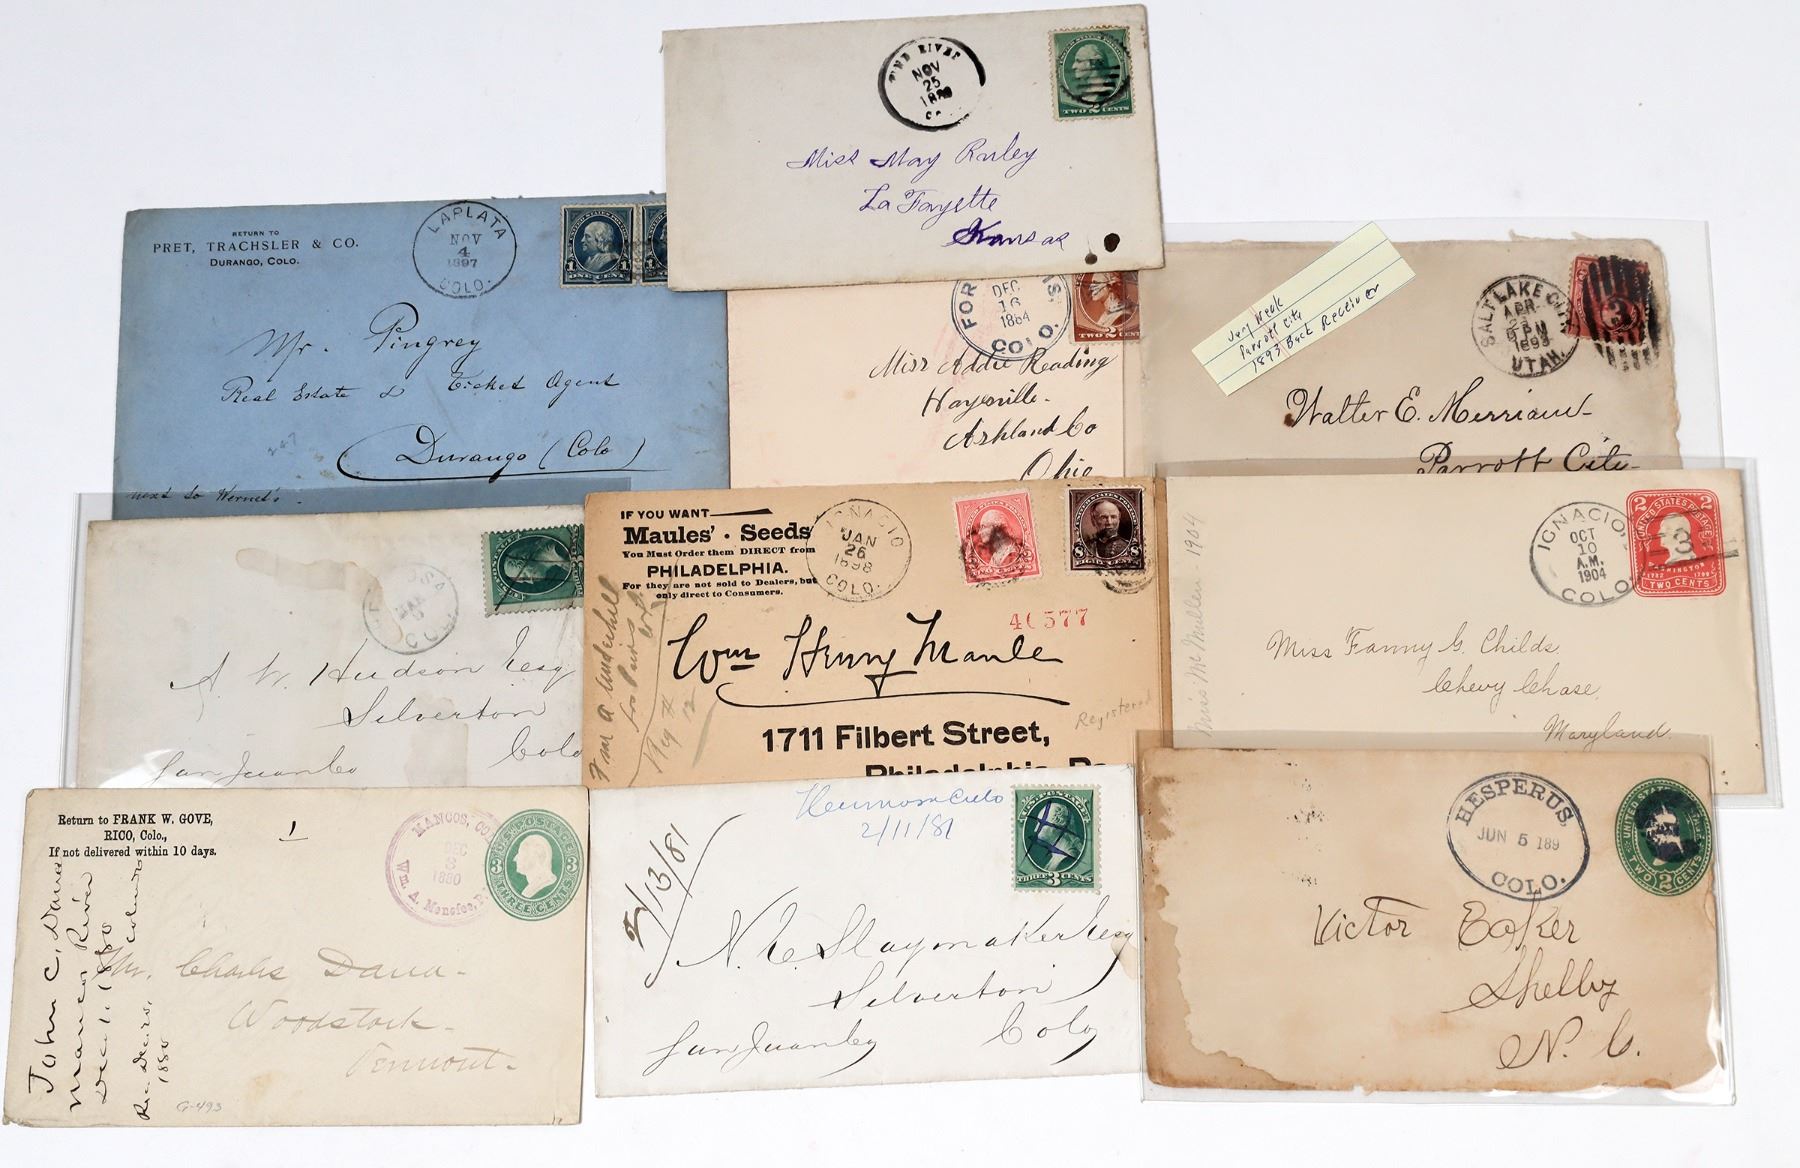 PINE RIVER
NOV
25
TWO 2 CENTS
Miss May Ruley
La Fayette
Kansas
RETURN TO
PRET, TRACHSLER & CO.
DURANGO, COLO.
LAPLATA
NOV
4
1897
COLO.
1 ONE CENT 1
Mr. Pingrey
Real Estate & Ticket Agent
Durango (Colo)
247
next to Wernet's
FOR
DEC
16
1884
COLO.
TWO 2 CENTS
Miss Addie Reading
Haysville.
Ashland Co
Ohio
Very Weak
Parrott City
1893 Back Receiver
SALT LAKE CITY
APR
PM
1893
UTAH.
3
Walter E. Merriam
Parrott City
COLO
A. W. Hudson Esq
Silverton
San Juan Co Colo
IF YOU WANT
Maules' · Seeds
You Must Order them DIRECT from
PHILADELPHIA.
For they are not sold to Dealers, but
only direct to Consumers.
IGNACIO
JAN
26
1898
COLO.
TWO CENTS
8 8
EIGHT CENTS
Wm Henry Maule
1711 Filbert Street,
Philadelphia, Pa
Registered
From A Underhill
Reg #
12
IGNACIO,
OCT
10
A.M.
1904
COLO.
2 2
UNITED STATES POSTAGE
3
WASHINGTON
1732 1799
TWO CENTS
Miss McMullen - 1904
Miss Fanny G. Childs
Chevy Chase,
Maryland.
Return to FRANK W. GOVE,
RICO, Colo.,
If not delivered within 10 days.
1
MANCOS, COLO
DEC
3
1880
Wm. A. Menefee, P.
U.S. POSTAGE
3 3
THREE CENTS
John C. Dana
Mancos River
Dec. 1. 1880
1880
Mr. Charles Dana-
Woodstock-
Vermont-
G-493
Hermosa Colo
2/11/81
2/13/81
U.S. POSTAGE
THREE 3 CENTS
N. E. Slaymaker Esq
Silverton
San Juan Co Colo
HESPERUS,
JUN 5 189
COLO.
UNITED STATES
TWO 2 CENTS
Victor Eaker
Shelby
N. C.